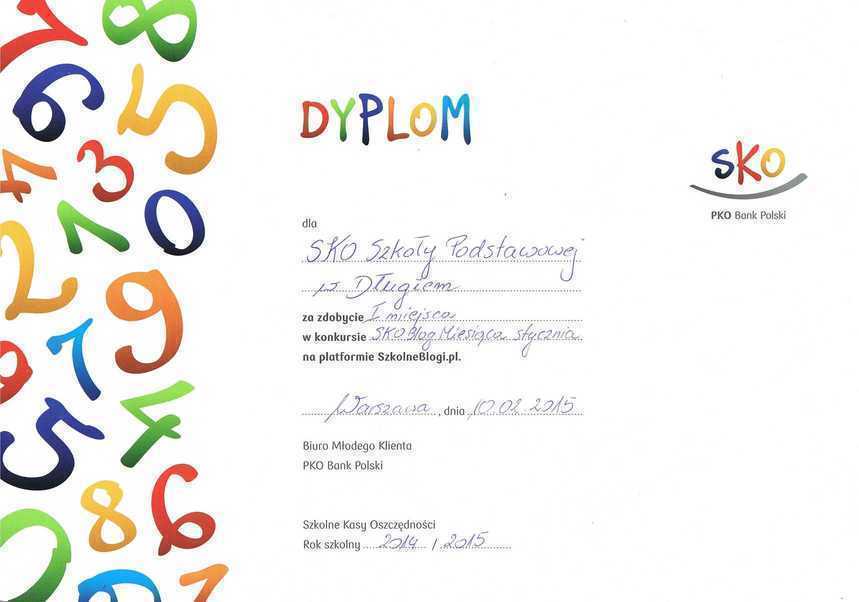 DYPLOM
SKO
PKO Bank Polski
dla
SKO Szkoły Podstawowej
w Długiem
za zdobycie I miejsca
w konkursie SKO Blog Miesiąca stycznia
na platformie SzkolneBlogi.pl.
Warszawa, dnia 10.02.2015
Biuro Młodego Klienta
PKO Bank Polski
Szkolne Kasy Oszczędności
Rok szkolny 2014 / 2015